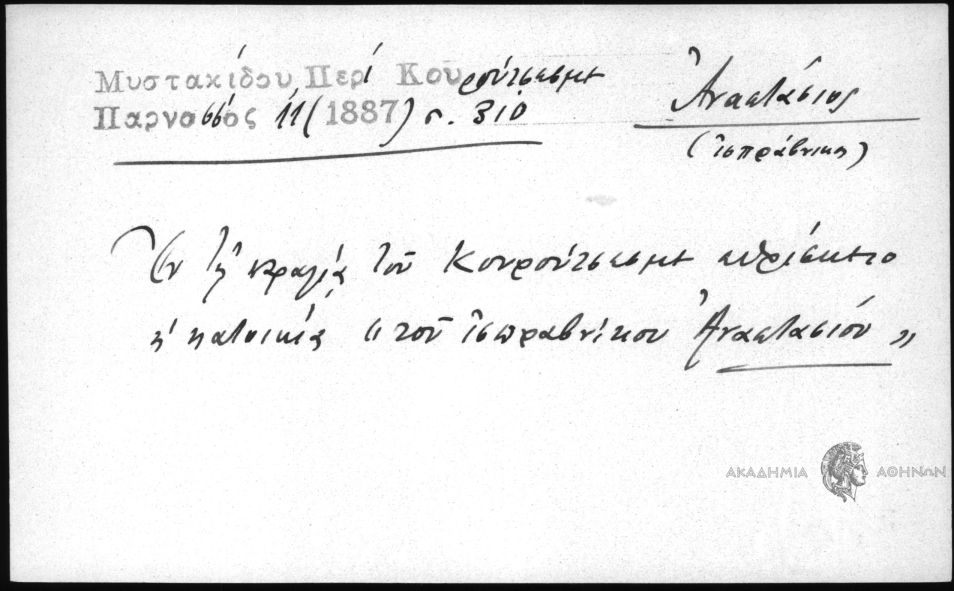 Μυστακίδου Περί Κουρούτσεσμε
Παρνασσός 11 (1887) σ. 310
Ἀναστάσιος
(ἰσπράβνικος)
Ἐν τῇ παραλίᾳ τοῦ Κουρούτσεσμε εὑρίσκετο
ἡ κατοικία "τοῦ ἰσπραβνίκου Ἀναστασίου"
ΑΚΑΔΗΜΙΑ ΑΘΗΝΩΝ